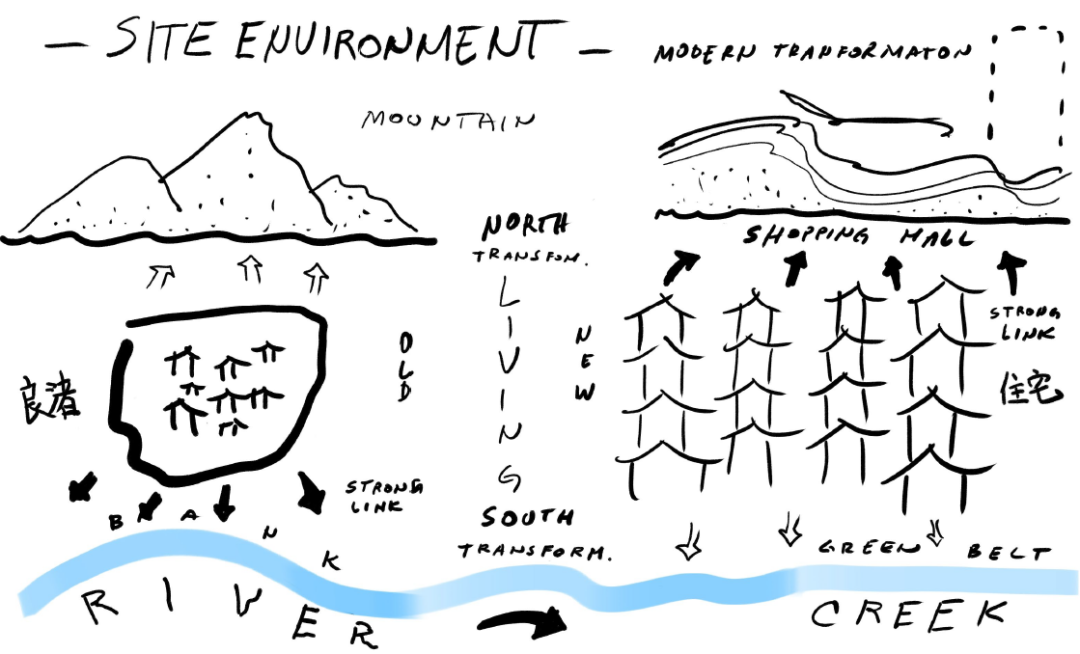 — SITE ENVIRONMENT —
MODERN TRANFORMATON
MOUNTAIN
NORTH
TRANSFOM.
SHOPPING MALL
LIVING
OLD
NEW
STRONG
LINK
良渚
住宅
STRONG
LINK
BANK
SOUTH
TRANSFORM.
GREEN BELT
RIVER
CREEK